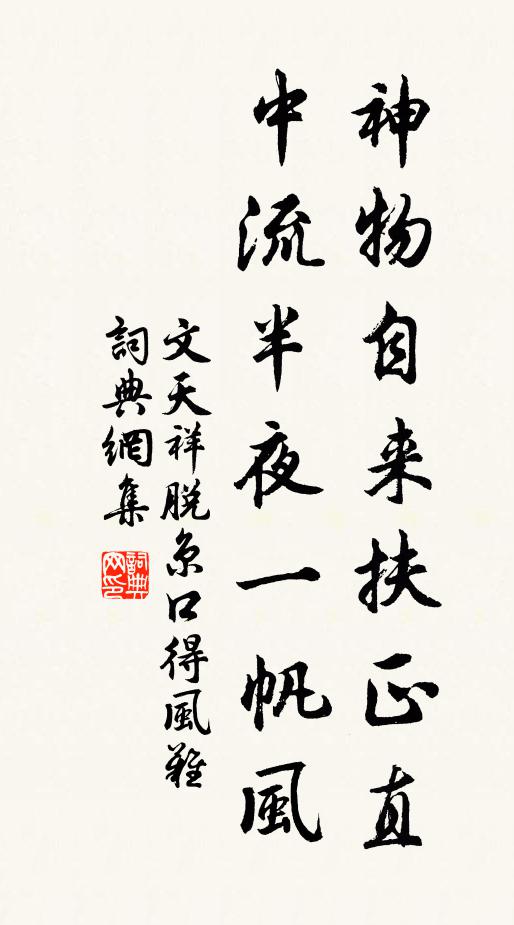 神物自来扶正直
中流半夜一帆風
文天祥脱京口得風難
詞典網集
詞典
网印